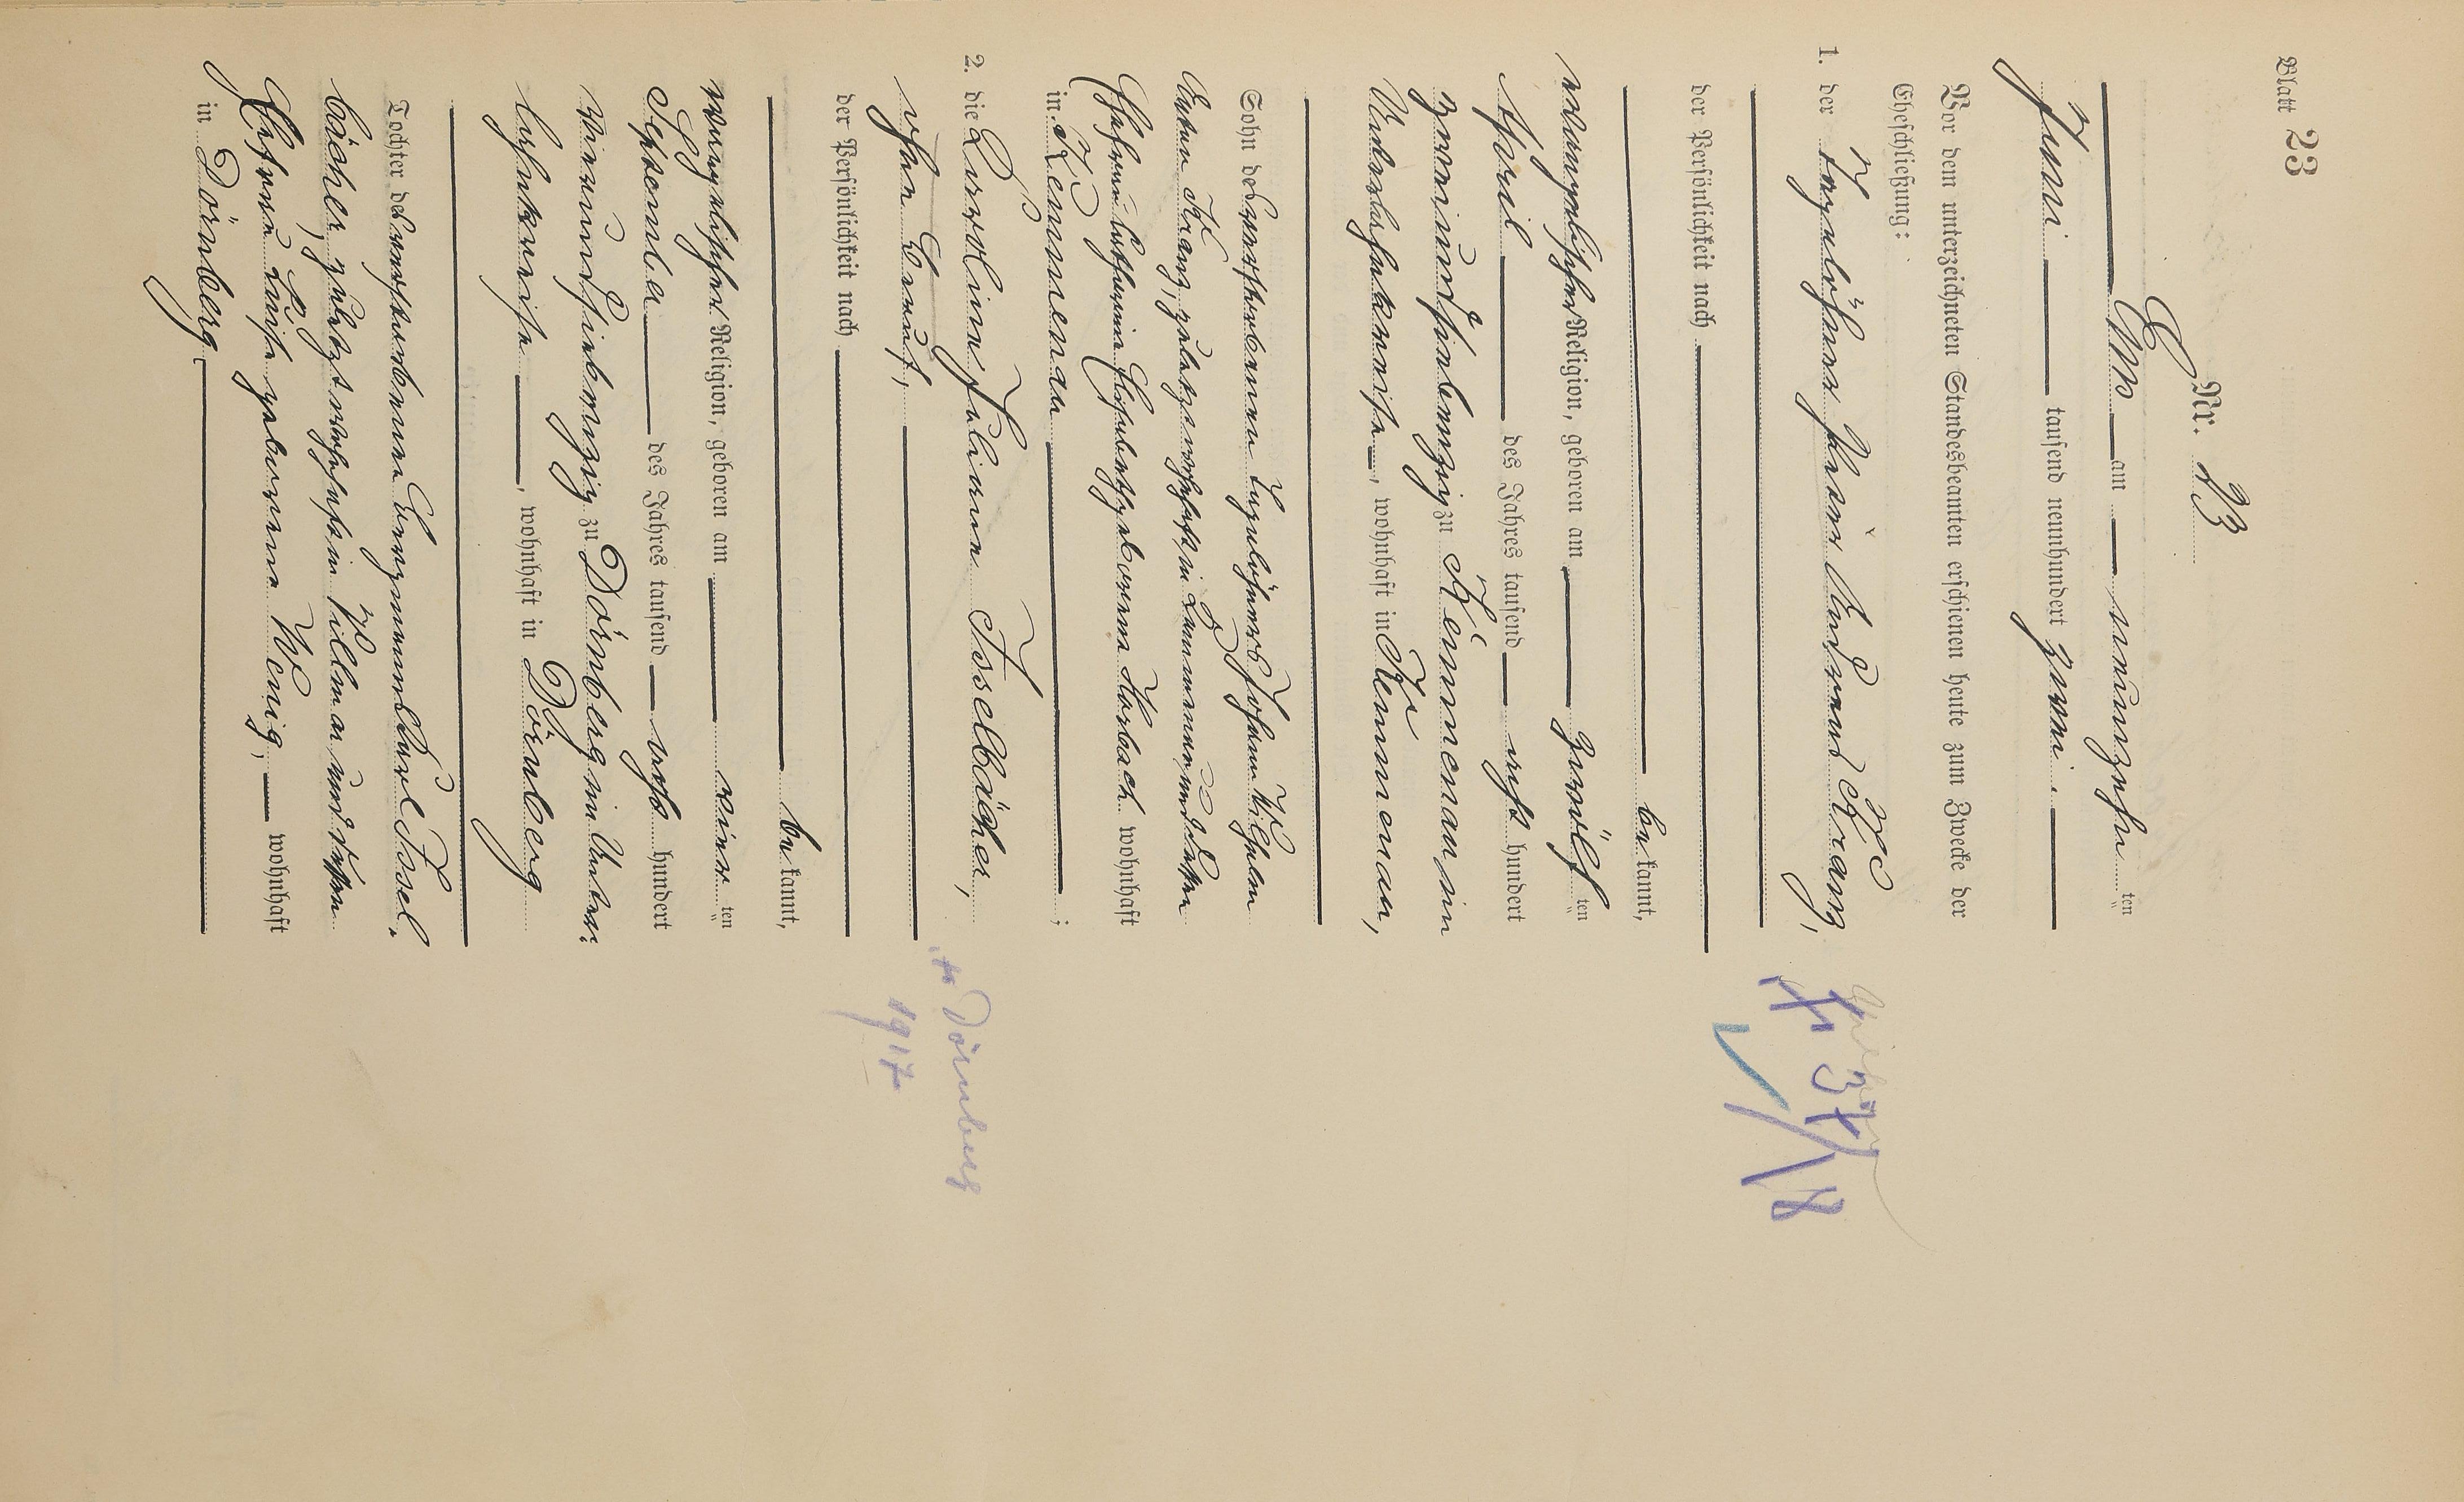 Blatt 23
Nr. 23
Ems am neunzehn ten
Juni tausend neunhundert zwei.
Vor dem unterzeichneten Standesbeamten erschienen heute zum Zwecke der
Eheschließung:
1. der Tagelöhner Karl Kranz,
der Persönlichkeit nach
bekannt,
evangelischer Religion, geboren am zwölf ten
April des Jahres tausend acht hundert
zweiundsiebenzig zu Kemmenau im
Unterlahnkreise, wohnhaft in Kemmenau,
Sohn des verstorbenen Tagelöhners Johann Wilhelm
Anton Kranz, zuletzt wohnhaft in Kemmenau und dessen
Ehefrau Katharina Elisabeth geborenen Horbach wohnhaft
in Kemmenau;
2. die Karoline Juliane Isselbächer,
ohne Beruf,
der Persönlichkeit nach
bekannt,
evangelischer Religion, geboren am vier ten
September des Jahres tausend acht hundert
vierundsiebenzig zu Dörnberg im Unter-
lahnkreise, wohnhaft in Dörnberg
Tochter des verstorbenen Bergmanns Karl Issel-
bächer, zuletzt wohnhaft in und dessen
Ehefrau Luise geborenen Wenig, wohnhaft
in Dörnberg
Dörnberg
1917